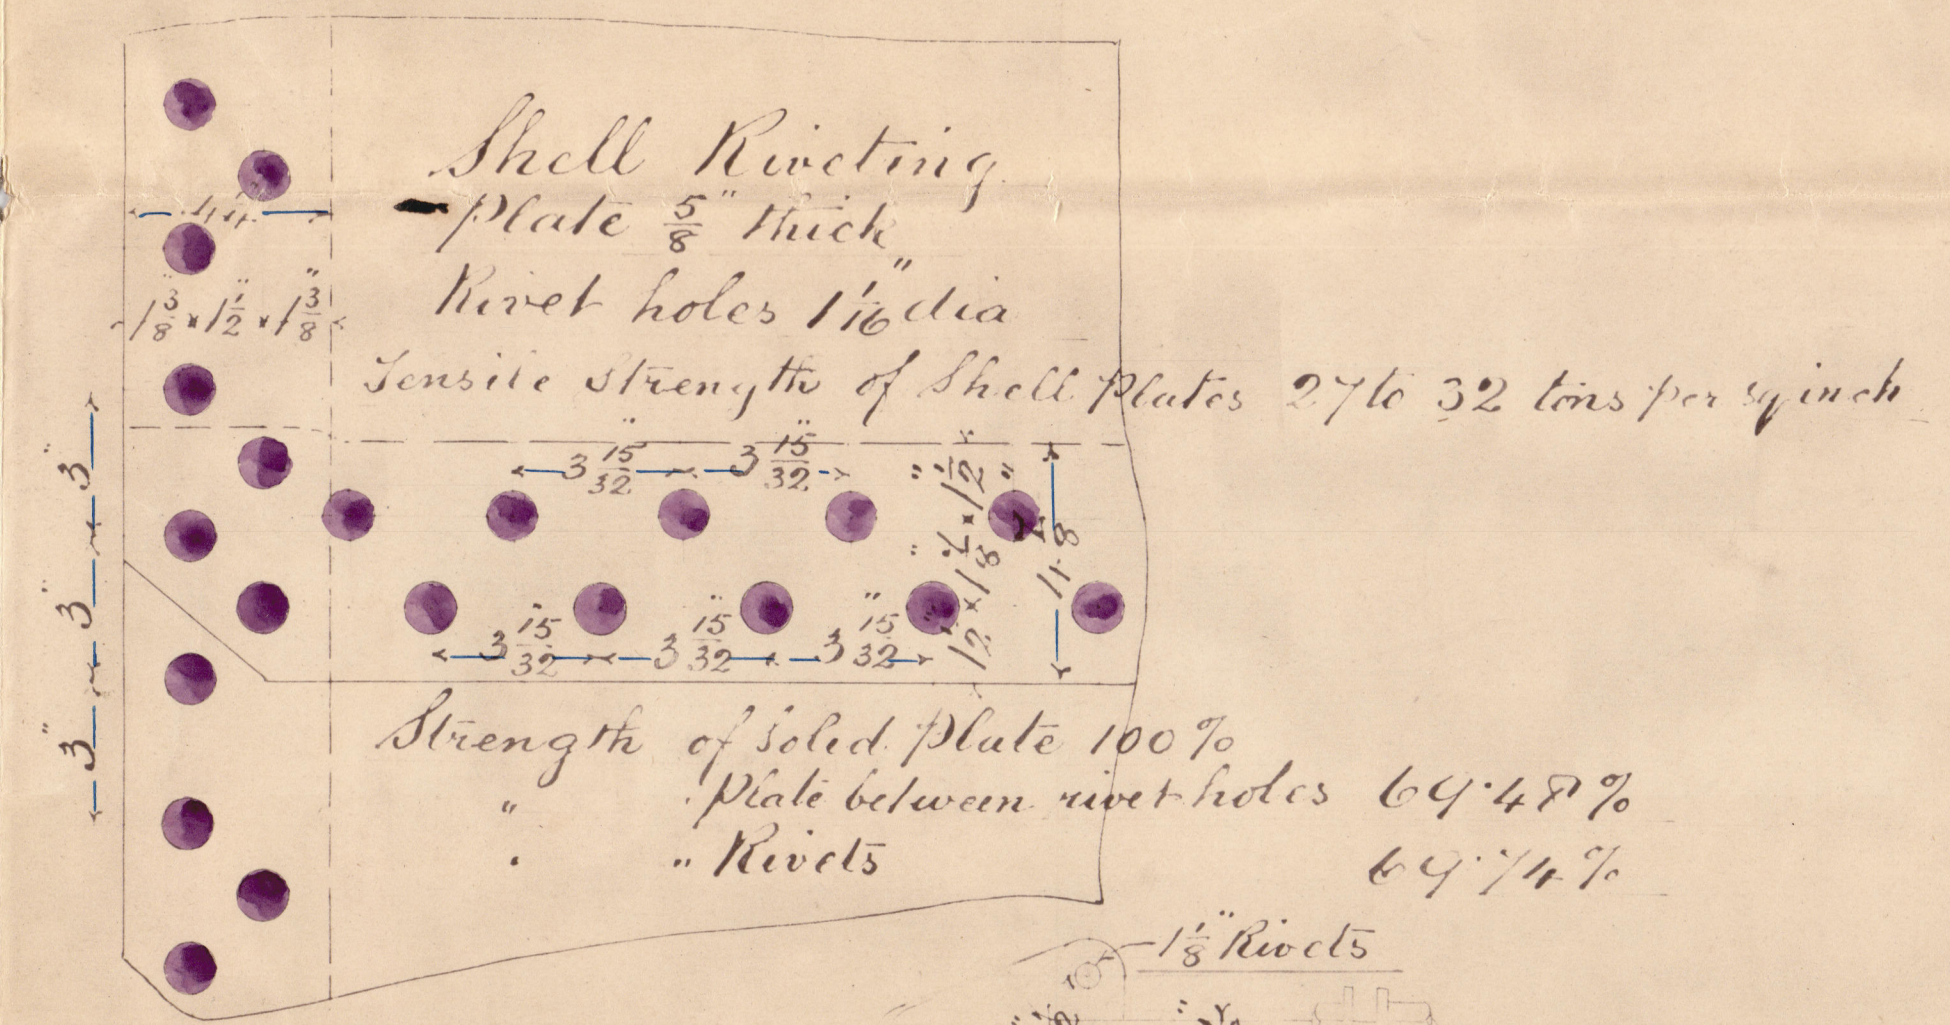 Shell Riveting
Plate 5/8" thick
Rivet holes 1 1/16" dia
Tensile Strength of Shell Plates 27 to 32 tons per sq inch
1 3/8" × 1 1/2" × 1 3/8"
3" 3" 3"
3 15/32" 3 15/32"
3 15/32" 3 15/32" 3 15/32"
Strength of Solid Plate 100%
" " Plate between rivet holes 69.48%
" " Rivets 69.74%
1 1/8" Rivets